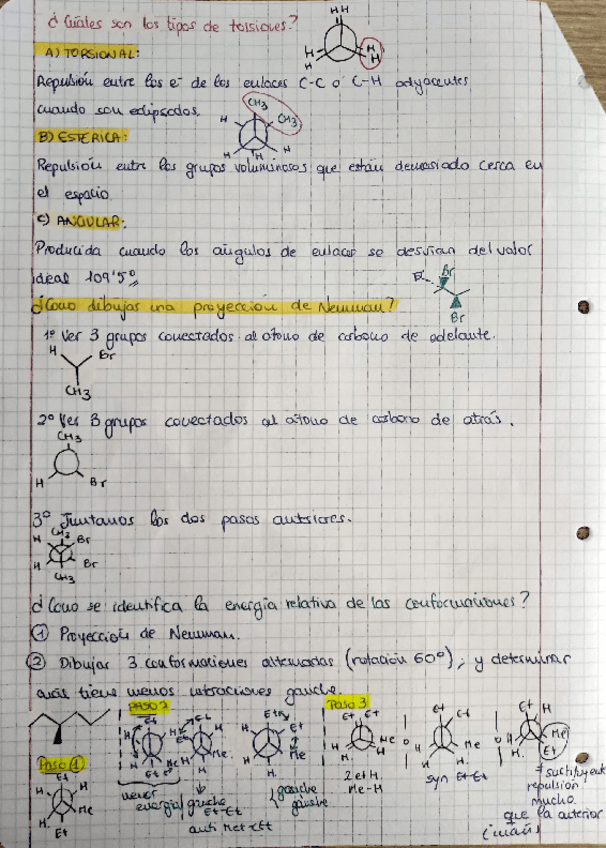 ¿Cuáles son los tipos de torsiones?
H H
H H
H H
A) TORSIONAL:
Repulsión entre los e⁻ de los enlaces C-C o C-H adyacentes
cuando son eclipsados.
CH3
H CH3
H H H
B) ESTÉRICA:
Repulsión entre los grupos voluminosos que están demasiado cerca en
el espacio.
C) ANGULAR:
Producida cuando los ángulos de enlaces se desvían del valor
ideal 109'5º
Br
Br
¿Como dibujar una proyección de Newman?
1º Ver 3 grupos conectados al átomo de carbono de adelante.
H Br
CH3
2º Ver 3 grupos conectados al átomo de carbono de atrás.
CH3
H Br
3º Juntamos los dos pasos anteriores.
CH3
H Br
H Br
CH3
¿Como se identifica la energía relativa de las conformaciones?
① Proyección de Newman.
② Dibujar 3 conformaciones alternadas (rotación 60º), y determinar
cual tiene menos gauche.
Paso ①
Et
H H
H Me
Et
PASO 2
Et
H
Me
menor
energía
gauche
Et-Et
gauche
gauche
Paso 3
Et Et
H Me
H H
2 Et H
Me-H
o
Et
Et
H Me
H
syn Et-Et
o
Et H
Me
H Et
H
repulsión
mucho
que la anterior